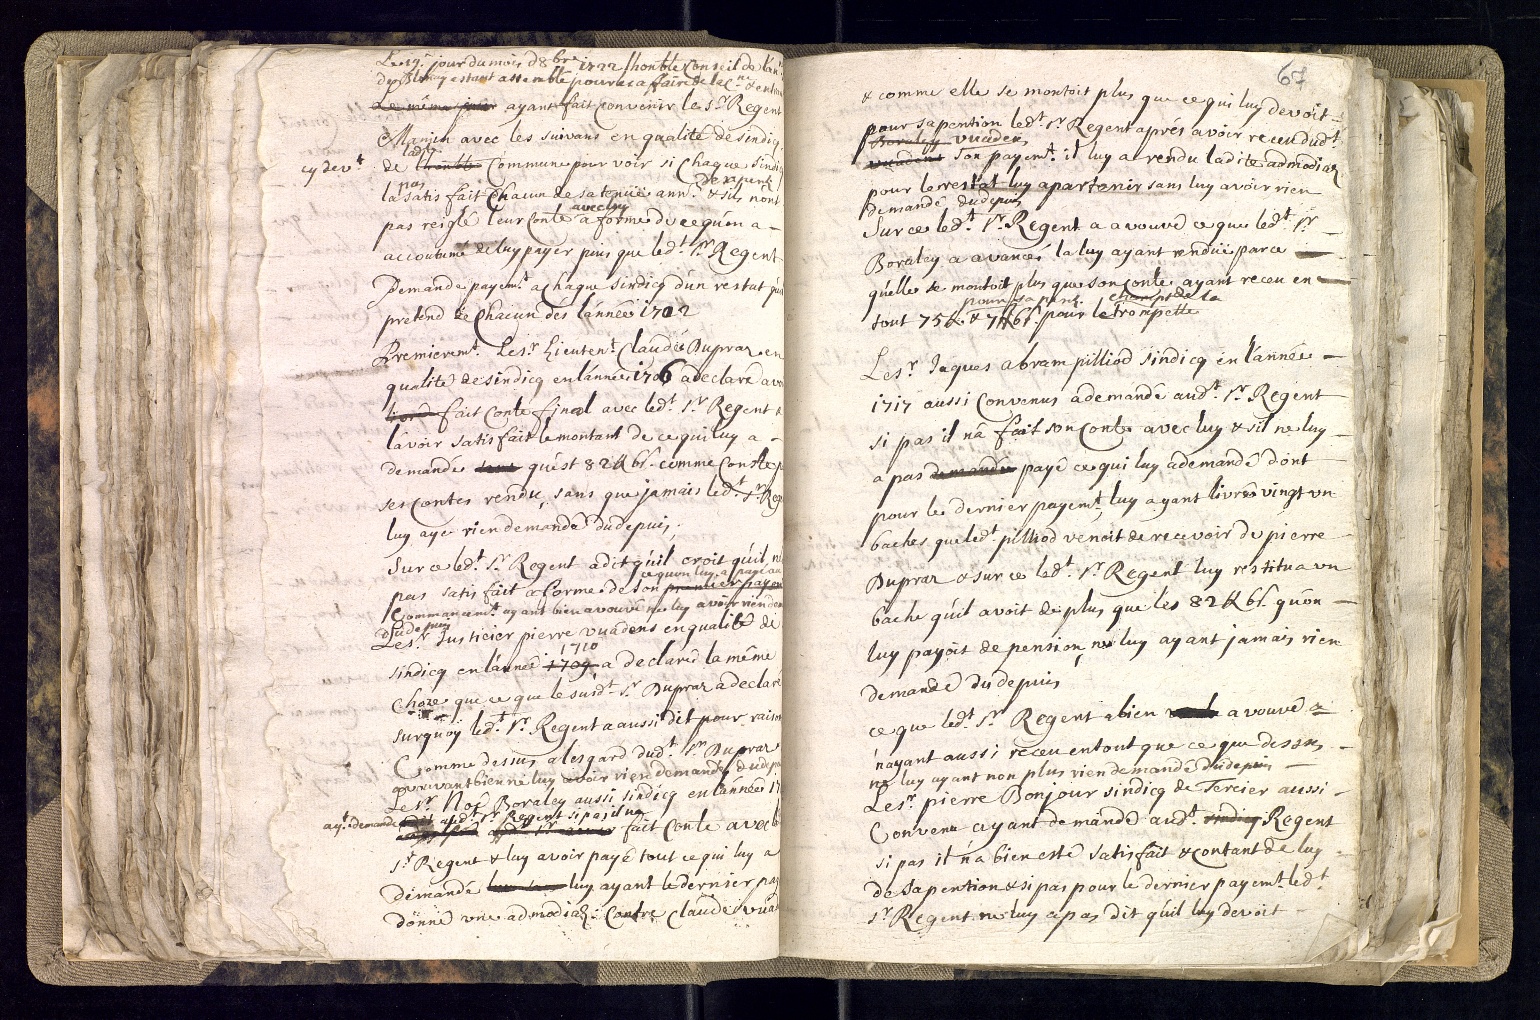 Le 19e. jour du mois d'8bre 1722 l'honble Conseil de
de Blonay estant assemblé pour
Le même jour ayant fait convenir le Sr. Regent
Manjen avec les suivans en qualité de sindiq
cy devt
ladte
de l'honble Commune pour voir si Chaque sindiq
pas
la satisfait Chacun de sa tenüe ann. & sils nont
avec luy
pas reiglé leur Conte a forme de ce qu'on a –
accoutumé de luy payer puis que ledt. Sr. Regent
Demande payemt. a Chaque sindicq d'un restat
pretend de Chacun dès l'année 1702
Premieremt. Le Sr. Lieutent. Claude Dupraz en
qualité de sindicq en l'année 1706 a declaré
fait Conte final avec ledt. Sr Regent &
lavoir satisfait le montant de ce quil luy a –
demandé qu'est 82 ff 6 s. comme Conste
ses Contes rendu, sans que jamais ledt. Sr.
luy aye rien demandé du depuis,
Sur ce ledt. Sr Regent a dit qu'il croit qu'il
ce quon luy a payé au
pas satisfait a forme de son premier
Commancemt. ayant bien avouvé ne luy avoir rien
du depuis
Le Sr. Justicier pierre vuadens en qualité de
1710
sindicq en l'année 1709 a declaré la même
Choze que ce que le susdt. Sr Dupraz a declaré
surquoy ledt. Sr. Regent a aussi dit pour
Comme dessus a lesgard dudt. Sr. Dupraz
avouvant bien ne luy avoir rien demandé du
Le Sr. Noé Boraley aussi sindicq en l'année
ayt. demandé audt. Sr. Regent si pas il na
fait Conte avec
Sr. Regent & luy avoir payé tout ce qui luy a
demandé luy ayant le dernier
donné vne admodiaon. Contre Claude
67
& comme elle se montoit plus que ce qui luy devoit –
pour sa pention ledt. Sr Regent aprés avoir receu dudt.
Boraley vuadens
vuadens son payemt. il luy a rendu ladite admodiaon
pour le restat luy apartenir sans luy avoir rien
demandé du depuis
Sur ce ledt. Sr. Regent a avouvé ce que ledt. Sr
Boraley a avancé la luy ayant rendüe parce –
qu'elle se montoit plus que son conte ayant receu en –
pour sa pent. champt de la
tout 75 ff. & 7 ff 6 s. pour le trompette
Le Sr. Jaques abram pilliod sindicq en l'année –
1717 aussi Convenus a demandé audt. Sr. Regent
si pas il n'a fait son Conte avec luy & sil ne luy –
a pas demandé payé ce qui luy a demandé dont –
pour le dernier payemt. luy ayant livré vingt vn
baches que ledt. pilliod venoit de recevoir de pierre
Dupraz & sur ce ledt. Sr Regent luy restitua vn
bache qu'il avoit de plus que les 82 ff 6 s. qu'on –
luy payoit de pension, ne luy ayant jamais rien
demandé du depuis
ce que ledt. Sr. Regent a bien avouvé &
n'ayant aussi receu en tout que ce que dessus –
ne luy ayant non plus rien demandé du depuis –
Le Sr. pierre Bonjour sindicq de Tercier aussi –
Convenu ayant demandé audt. sindiq Regent
si pas il n'a bien esté satisfait & contant de luy
de sa pention & si pas pour le dernier payemt. ledt.
Sr. Regent ne luy a pas dit qu'il luy devoit –